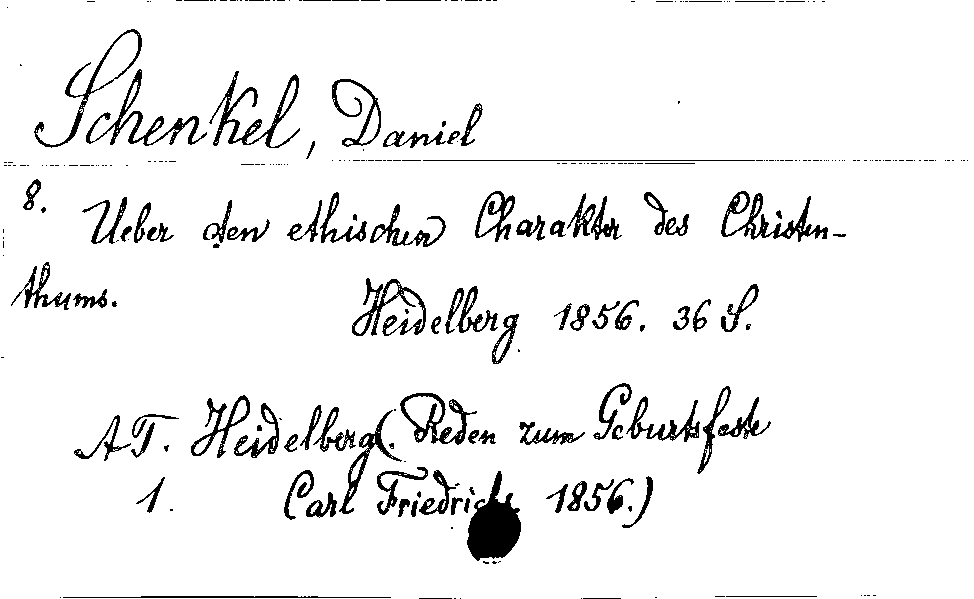 Schenkel, Daniel
8. Ueber den ethischen Charakter des Christen-
thums.
Heidelberg 1856. 36 S.
AT. Heidelberg (. Reden zum Geburtsfeste
1. Carl Friedrichs. 1856.)